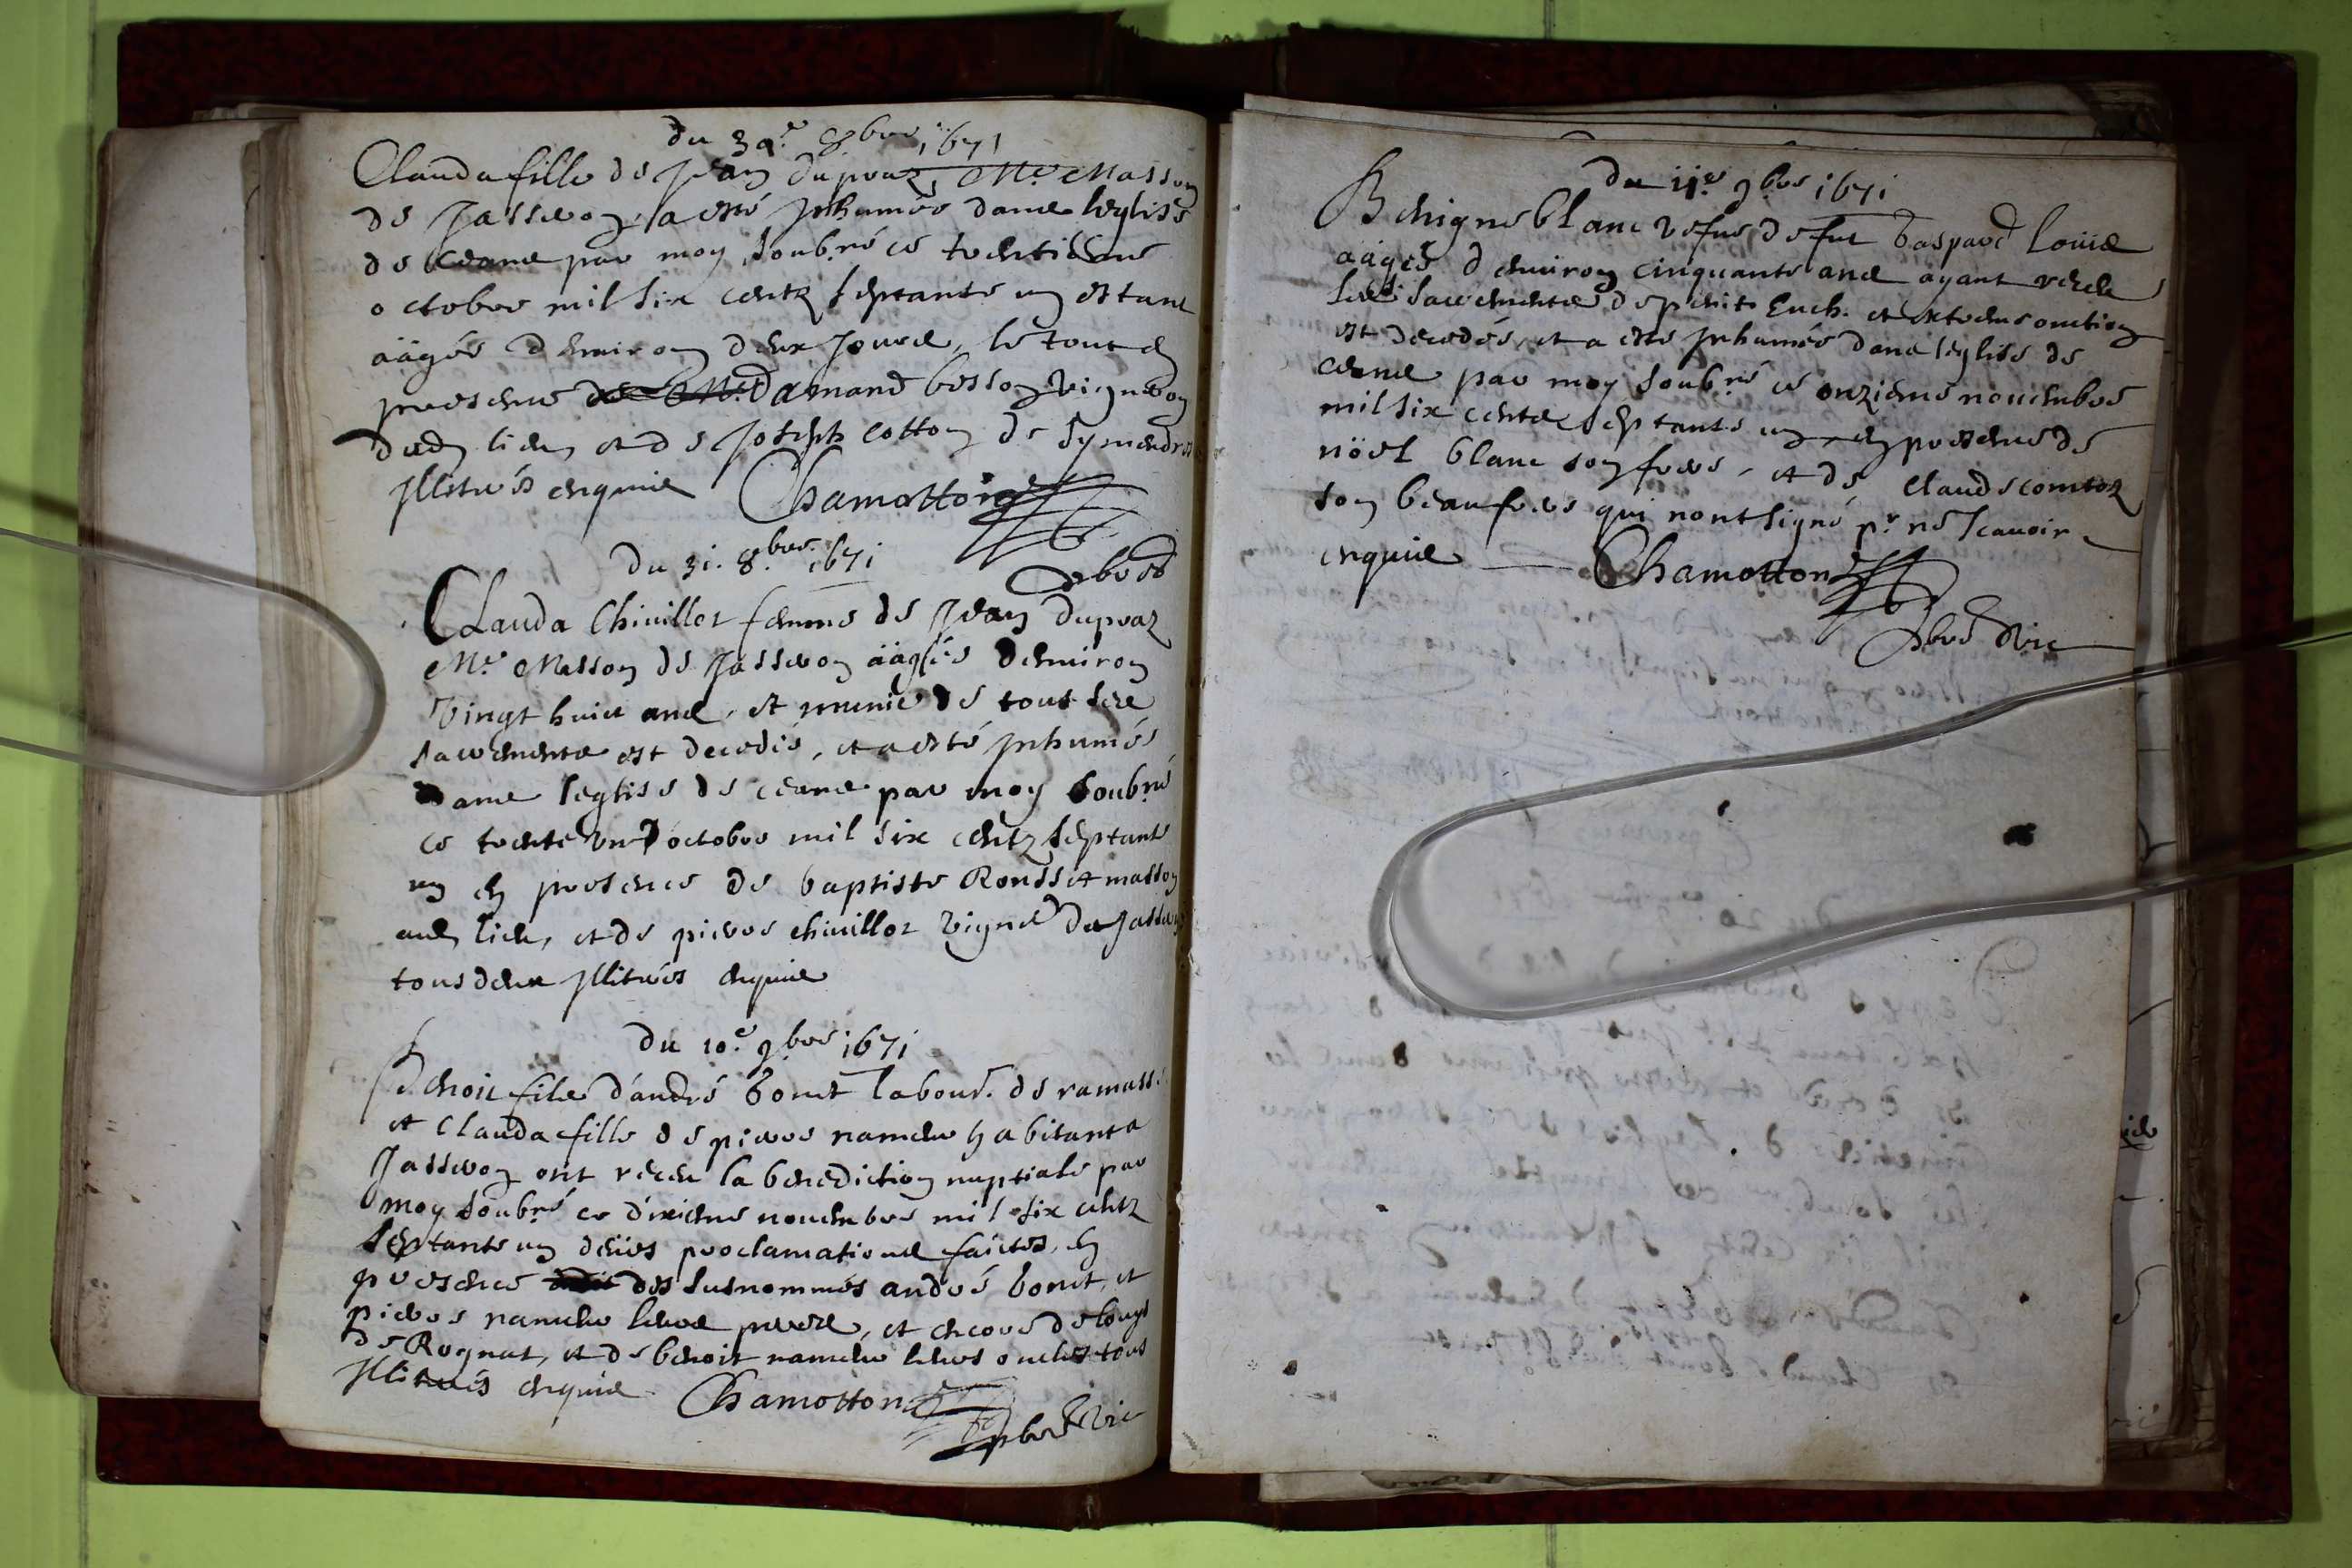 du 30.e 8.bre 1671
Clauda fille de Jean dupraz, Me. Masson
de Jasseron, a esté Inhumée dans leglise
de ceans par moy soub.né ce trentiesme
octobre mil six centz septante un estant
äagée denviron deux Jours, le tout en
presence Damand besson vigneron
dud. lieu et de Joseph cotton de symandre
Illitrés enquis Chamotton
du 31. 8.bre 1671
Clauda Chivillot femme de Jean dupraz
Me. Masson de Jasseron äagée denviron
vingt huict ans, et munie de tout ses
sacrements est decedée, et a esté Inhumée
dans leglise de ceans par moy soub.né
ce trente un octobre mil six centz septante
un en presence de baptiste Rousset masson
aud. lieu, et de pierre chivillot vigne.r de Jasseron
tous deux Illitrés enquis
du 10.e 9.bre 1671
Benoit fils d'andré bonet labour. de ramasse
et Clauda fille de pierre nameau habitants
Jasseron ont receu la benediction nuptiale par
moy soub.né ce dixieme novembre mil six centz
septante un deües proclamations faictes, en
presence des susnommés andré bonet, et
pierre nameau leurs peres, et encore de louys
de Rognat, et de benoit nameau leurs oncles tous
Illitrés enquis Chamotton
pbre Vic
du 11.e 9.bre 1671
Benigne blanc vefve de fut Gaspard loüis
äagée d'environ cinquante ans ayant receu
les sacrements de penit. Euch. et extreme onction
est decedée, et a esté Inhumée dans leglise de
ceans par moy soub.né ce onzieme novembre
mil six cents septante un en presence de
nöel blanc son frere, et de Claude comtoz
son beaufrere qui nont signé p.r ne scavoir
enquis Chamotton
pbre Vic